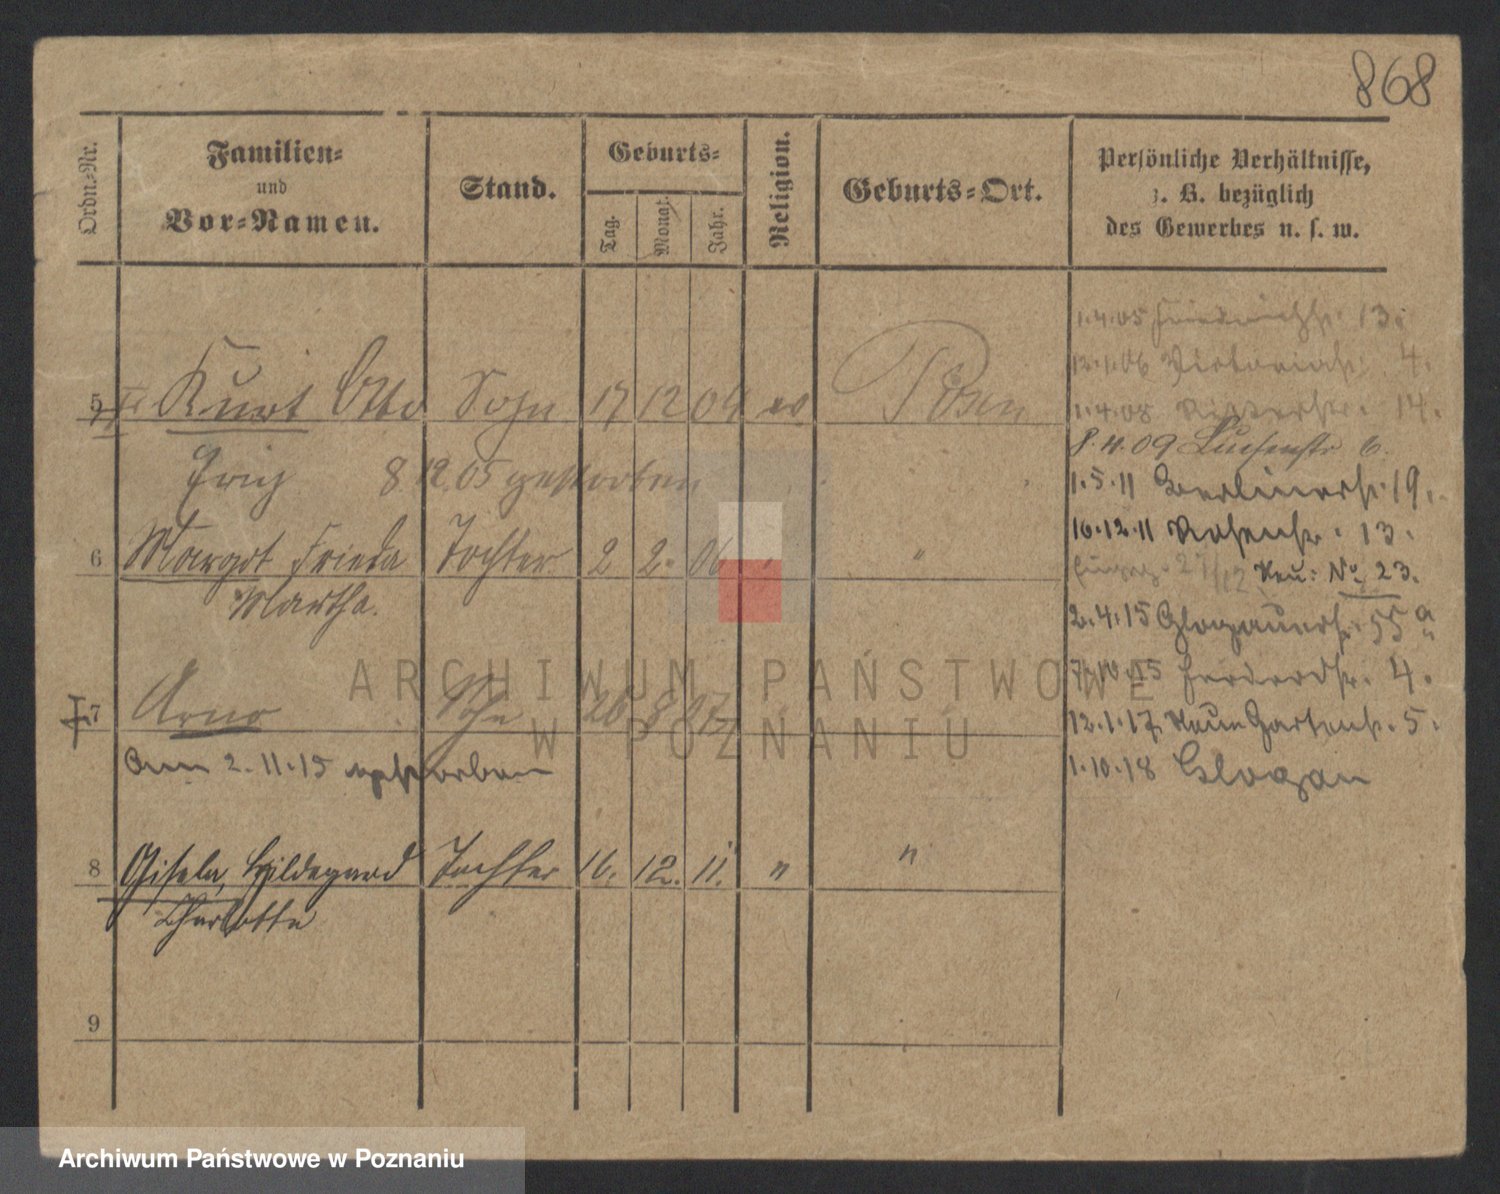 868
Ordn.-Nr.
Familien-
und
Vor-Namen.
Stand.
Geburts-
Tag.
Monat.
Jahr.
Religion.
Geburts-Ort.
Persönliche Verhältnisse,
z. B. bezüglich
des Gewerbes u. s. w.
1.4.05 Friedrichstr. 13.
12.1.06 Victoriastr. 4.
5 Kurt Otto Sohn 17 12 04 ev Posen
1.4.08 Ritterstr. 14.
8.4.09 Luisenstr 6.
8 12.05 gestorben
1.5.11 Berlinerstr. 19.
16.12.11 Rosenstr. 13.
6 Margot Frieda Tochter 2 2. 06 " "
27/12 Neu: No 23.
Martha.
2.4.15 Glogauerstr. 55a
7.10.15 Herderstr. 4.
ARCHIWUM PAŃSTWOWE
W POZNANIU
7 Arno Sohn 26 8 07
12.1.17. Neue Gartenstr. 5.
am 2.11.15 gestorben
1.10.18 Glogau
8 Gisela, Hildegard Tochter 16. 12. 11. " "
Charlotte
9
Archiwum Państwowe w Poznaniu